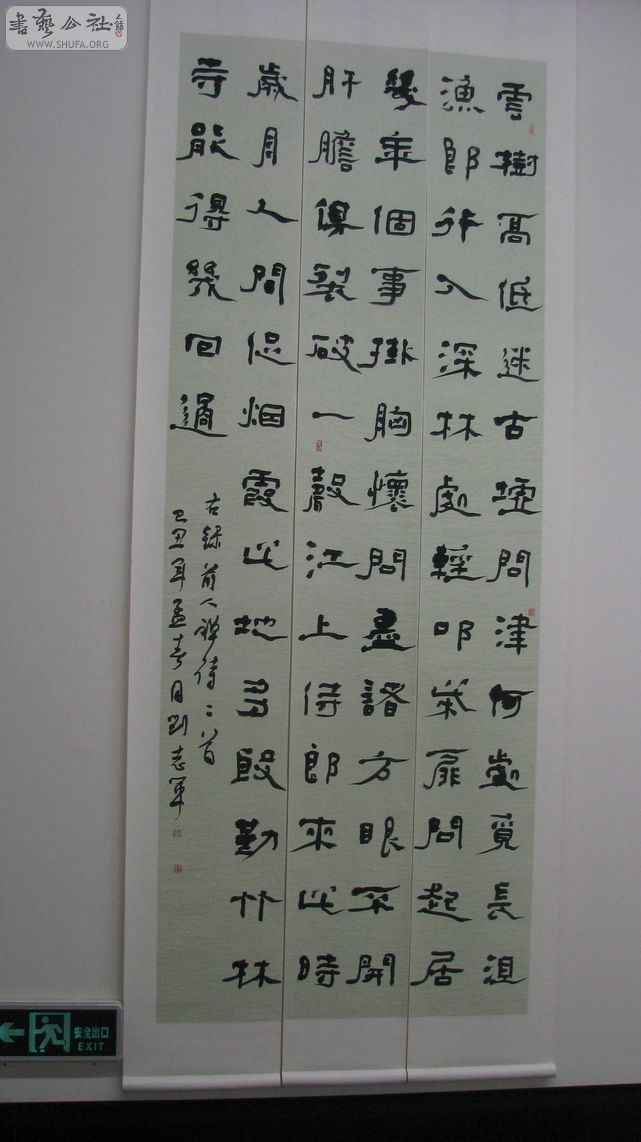 雲樹高低迷古墟問津何處覓長沮
漁郎行入深林處輕叩柴扉問起居
幾年個事掛胸懷問盡諸方眼不開
肝膽俱裂破一聲江上侍郎來此時
歲月人間促烟霞此地多殷勤竹林
寺能得幾回過
右録前人禪詩二首
己丑年孟春月劉志軍
書藝公社
WWW.SHUFA.ORG
安全出口
EXIT